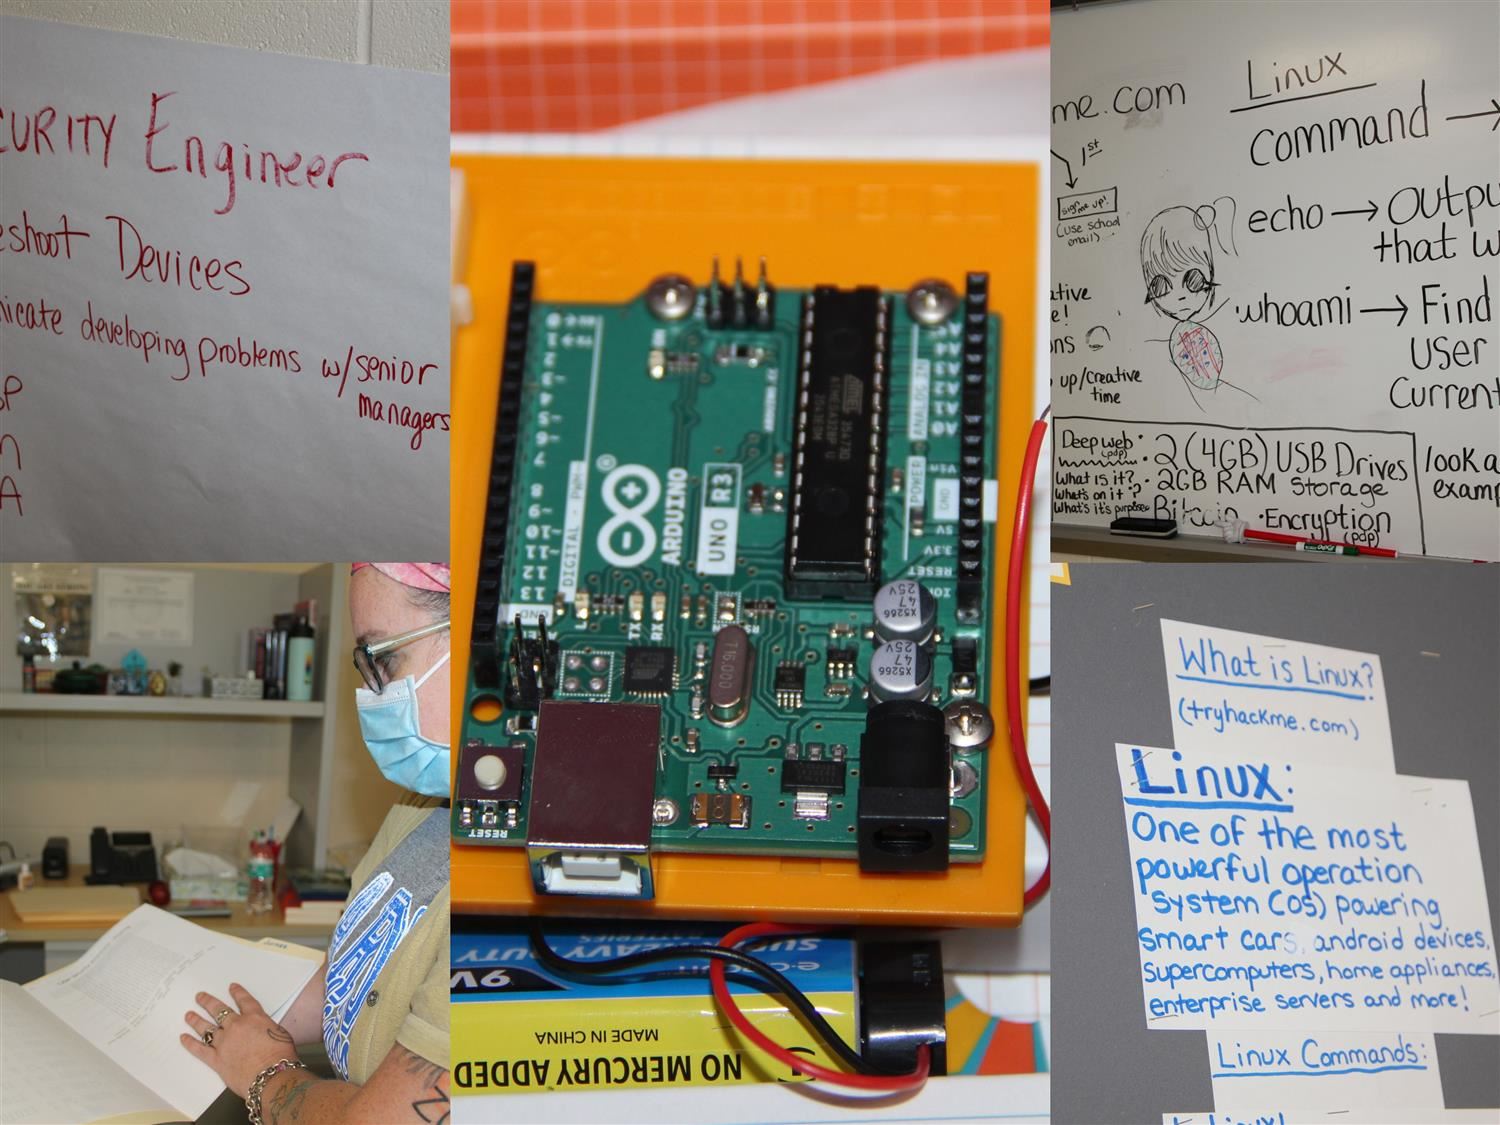 CURITY Engineer
eshoot Devices
nicate developing problems w/senior
managers
A
ARDUINO
UNO R3
DIGITAL
PWM~
ANALOG IN
POWER
A4
A3
A2
A1
A0
Vin
GND
5V
3.3V
RESET
1
2
~3
4
~5
~6
7
8
~9
~10
~11
12
13
GND
TX
RX
RESET
ATMEGA328P
T16.000
47
25V
X5266
47
25V
X5266
HEAVY DUTY
9V
MADE IN CHINA
NO MERCURY ADDED
me.com
Linux
1st
command →
sign me up!
(use school
email)
echo → Outpu
that w
ative
e!
ons
whoami → Find
user
Current
up/creative
time
Deepweb: (pdp)
What is it?
What's on it?
What's it's purpose?
2 (4GB) USB Drives
2GB RAM Storage
Bitcoin · Encryption
(pdp)
look a
examp
What is Linux?
(tryhackme.com)
Linux:
One of the most
powerful operation
system (os) powering
smart cars, android devices,
supercomputers, home appliances,
enterprise servers and more!
Linux Commands: